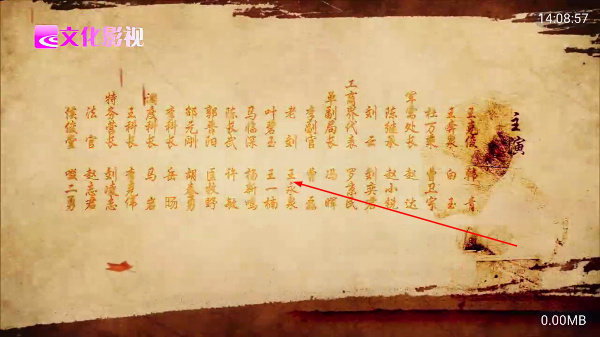 文化影视
14:08:57
主演
王克俊 韩青
王奔泉 白玉
杜万泉 曹卫宇
军需处长 赵达
陈继承 赵小锐
刘云 刘奕君
工商界代表 罗京民
单副局长 冯晖
李副官 曹磊
老刘 王永泉
叶碧玉 王一楠
马临深 杨新鸣
陈长武 许敏
郭景阳 匡牧野
邹元刚 胡春勇
李科长 岳旸
调度科长 马岩
王科长 李彦伟
特务营长 刘凌志
法官 赵志君
侯俊堂 啜二勇
0.00MB